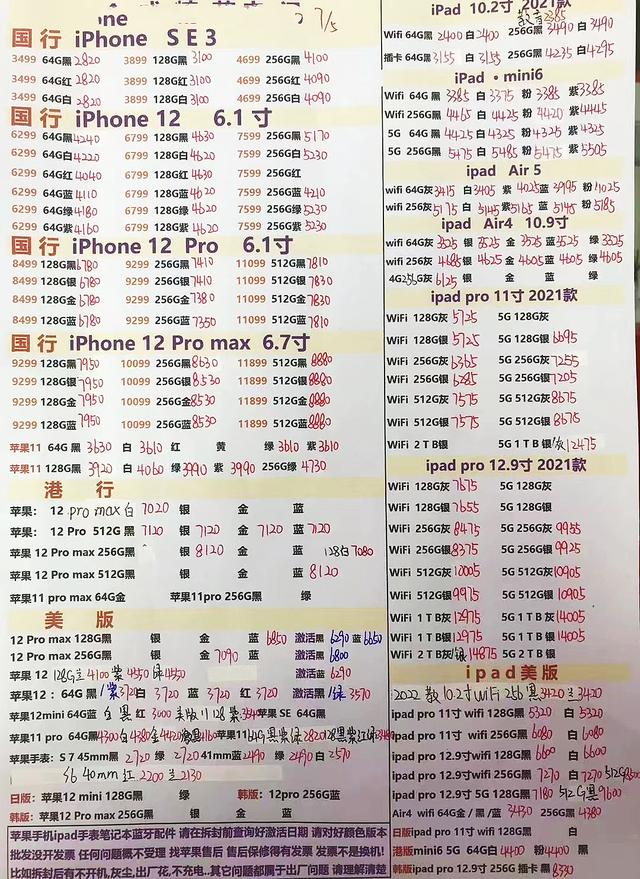 7/5
国行 iPhone SE3
3499 64G黑 2820 3899 128G黑 3100 4699 256G黑 4100
3499 64G红 2820 3899 128G红 3100 4699 256G红 4090
3499 64G白 2820 3899 128G白 3100 4699 256G白 4090
国行 iPhone 12 6.1寸
6299 64G黑 4240 6799 128G黑 4630 7599 256G黑 5170
6299 64G白 4220 6799 128G白 4620 7599 256G白 5230
6299 64G红 4040 6799 128G红 4630 7599 256G红
6299 64G蓝 4110 6799 128G蓝 4620 7599 256G蓝 4210
6299 64G绿 4180 6799 128G绿 4620 7599 256G绿 5230
6299 64G紫 4160 6799 128G紫 4620 7599 256G紫 5230
国行 iPhone 12 Pro 6.1寸
8499 128G黑 6780 9299 256G黑 7410 11099 512G黑 7810
8499 128G银 6780 9299 256G银 7410 11099 512G银 7830
8499 128G金 6780 9299 256G金 7380 11099 512G金 7830
8499 128G蓝 6780 9299 256G蓝 7350 11099 512G蓝 7810
国行 iPhone 12 Pro max 6.7寸
9299 128G黑 7950 10099 256G黑 8630 11899 512G黑 8880
9299 128G银 7950 10099 256G银 8530 11899 512G银 8880
9299 128G金 7950 10099 256G金 8530 11899 512G金 8880
9299 128G蓝 7950 10099 256G蓝 8530 11899 512G蓝 8880
苹果11 64G 黑 3630 白 3610 红 黄 绿 3610 紫 3610
苹果11 128G黑 3920 白 4060 绿 3990 紫 3990 256G绿 4730
港行
苹果: 12 pro max 白 7020 银 金 蓝
苹果: 12 Pro 512G 黑 7120 银 7120 金 7120 蓝 7120
苹果 12 Pro max 256G黑 银 8120 金 蓝 128白 7080
苹果 12 Pro max 512G黑 银 金 蓝 8120
苹果11 pro max 64G金 苹果11pro 256G黑 绿
美版
12 Pro max 128G黑 银 金 蓝 6850 激活黑 6290 蓝 6650
12 Pro max 256G黑 银 金 7090 蓝 激活黑 6800
苹果 12 128G兰 4100 紫 4550 绿 4550 激活蓝 6290
苹果12: 64G 黑/紫 3720 白 3720 蓝 3720 红 3720 激活黑/绿 3570
苹果12mini 64G蓝 白 黑 红 3000 美版11 128紫 苹果 SE 64G黑
苹果11 pro 64G黑 4300 白 4380 金 4420 苹果11 64G黑紫绿 2820 128黑紫红绿
苹果手表: S 7 45mm黑 2720 绿 2720 41mm蓝 2490 绿 2490 白 2570
S6 40mm 红 2200 兰 2130
日版: 苹果12 mini 128G黑 绿 韩版: 12pro 256G蓝
韩版: 苹果12 Pro max 256G黑 银 金 蓝
苹果手机ipad手表笔记本蓝牙配件 请在拆封前查询好激活日期 请对好颜色版本
批发没开发票 任何问题概不受理 找苹果售后 售后保修得有发票 发票不是换机!
比如拆封后有不开机,灰尘,出厂花,不充电..其它问题都属于出厂问题 请理解清楚
iPad 10.2寸 2021款
Wifi 64G 黑 2400 白 2400 256G黑 3490 白 3490
插卡 64G黑 3155 白 3155 256G黑 4235 白 4295
iPad·mini6
Wifi 64G 黑 3385 白 3375 粉 3385 紫 3385
Wifi 256G黑 4465 白 4425 粉 4420 紫 4445
5G 64G 黑 4425 白 4325 粉 4325 紫 4325
5G 256G黑 5475 白 5485 粉 5475 紫 5505
ipad Air 5
wifi 64G灰 3415 白 3405 紫 4025 蓝 3995 粉 4025
wifi 256灰 5175 白 5145 紫 5165 蓝 5145 粉 5185
ipad Air4 10.9寸
wifi 64G灰 3525 银 3525 金 3525 蓝 3525 绿 3525
wifi 256灰 4685 银 4625 金 4605 蓝 4605 绿 4605
4G256G灰 6125 银 金 蓝 绿
ipad pro 11寸 2021款
WiFi 128G灰 5725 5G 128G灰
WiFi 128G银 5725 5G 128G银 6695
WiFi 256G灰 6365 5G 256G灰 7255
WiFi 256G银 6285 5G 256G银 7205
WiFi 512G灰 7575 5G 512G灰 8675
WiFi 512G银 7575 5G 512G银 8675
WiFi 2 T B银 5G 1 T B银/灰 12475
ipad pro 12.9寸 2021款
WiFi 128G灰 7675 5G 128G灰
WiFi 128G银 7655 5G 128G银
WiFi 256G灰 8475 5G 256G灰 9955
WiFi 256G银 8375 5G 256G银 9925
WiFi 512G灰 10005 5G 512G灰 10905
WiFi 512G银 9975 5G 512G银 10905
WiFi 1 T B灰 12975 5G 1 T B灰 14005
WiFi 1 T B银 12975 5G 1 T B银 14005
WiFi 2 T B灰/银 14875 5G 2 T B灰
ipad美版
2022 款 10.2寸 wifi 256 黑 3420 兰 3420
ipad pro 11寸 wifi 128G黑 5320 白 5320
ipad pro 11寸 wifi 256G黑 6080 白 6080
ipad pro 12.9寸wifi 128G黑 6600 白 6600
ipad pro 12.9寸wifi 256G黑 7270 白 7270 512G
ipad pro 12.9寸 5G 128G黑 7180 512G黑 9600
Air4 wifi 64G金/黑/蓝 3430 256G黑 4380
日版ipad pro 11寸 wifi 128G黑 白
港版mini6 5G 64G白 4400 粉 4400 黑
韩版ipad pro 12.9寸 256G 插卡 黑 8330